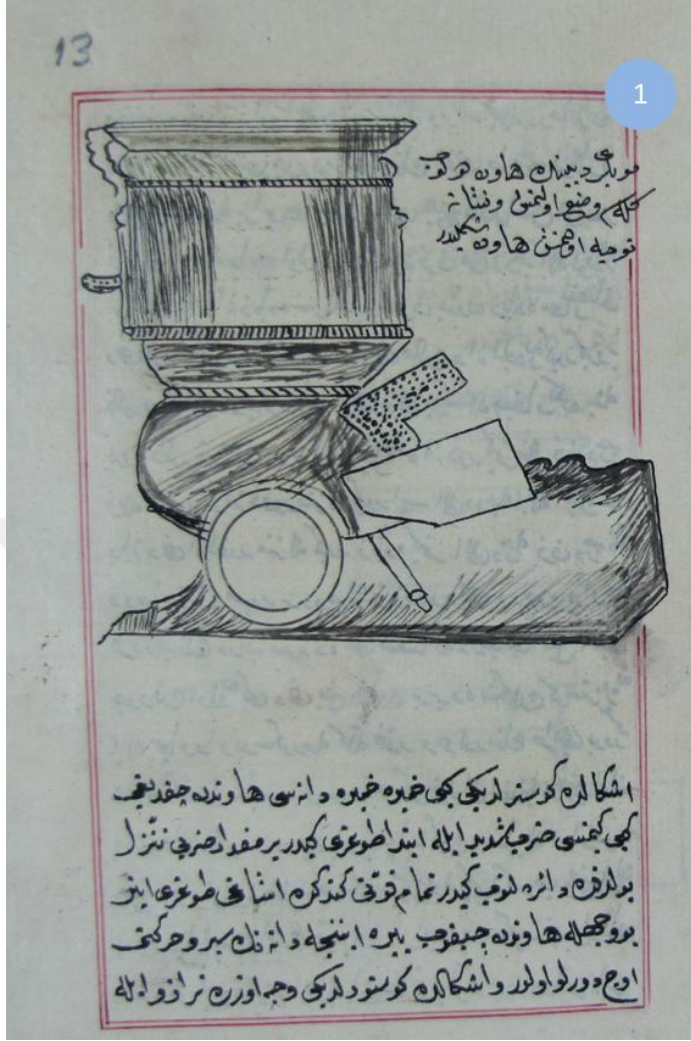 13
1
هاون
وضع اولنمش و نيشانه
توجه هاون شكليدر
اشكالده كوسترلديكي كبي خمبره خمبره دانه سي هاوندن چقديغي
كبي ضرب شديد ايله ابتدا طوغرى كيدر بر مقدار ضربي تنزل
بولدقده دائره لنوب كيدر تمام قوتي كتدكده اشاغي طوغرى اينر
بو وجهله هاوندن چيقوب يره اينجه دانه نك سير و حركتي
اوچ دورلو اولور و اشكالده كوسترلديكي وجه اوزره ترازو ايله